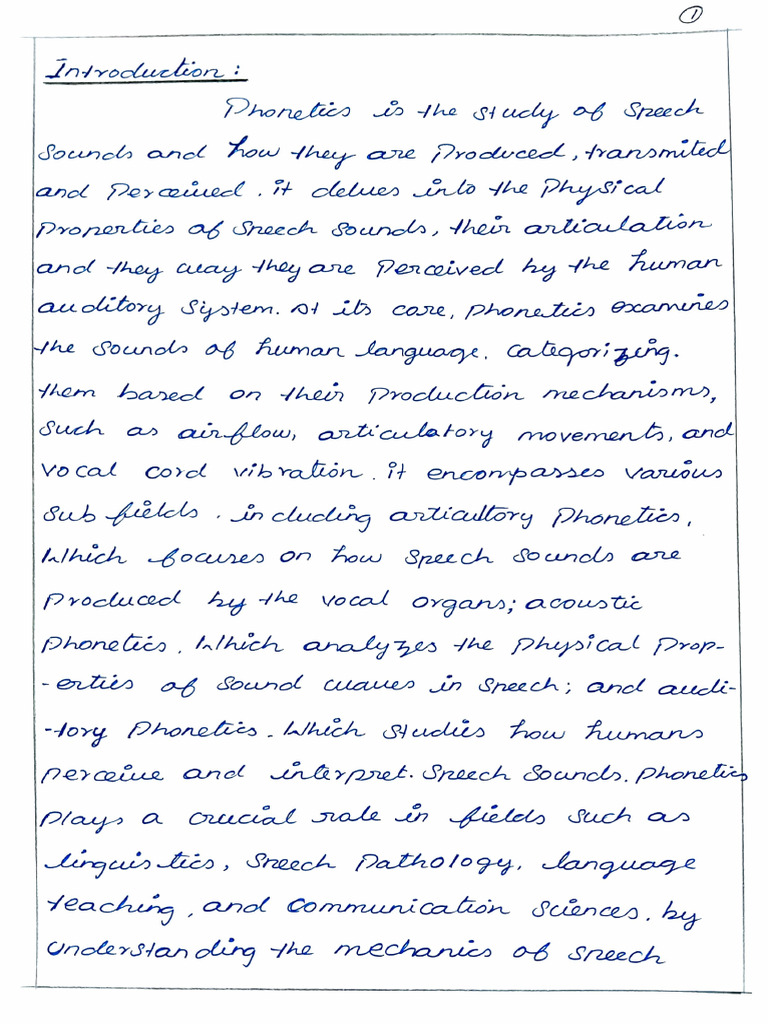 1
Introduction :
Phonetics is the study of speech
sounds and how they are produced, transmited
and perceived. it delves into the physical
properties of speech sounds, their articulation
and they way they are perceived by the human
auditory system. At its core, phonetics examines
the sounds of human language. categorizing.
them based on their production mechanisms,
such as airflow, articulatory movements, and
vocal cord vibration. it encompasses various
sub fields. including articultory phonetics,
Which focuses on how speech sounds are
produced by the vocal organs; acoustic
phonetics. Which analyzes the physical prop-
-erties of sound waves in speech; and audi-
-tory phonetics. Which studies how humans
perceive and interpret. speech sounds. phonetics
plays a crucial role in fields such as
linguistics, speech pathology, language
teaching, and communication sciences. by
understanding the mechanics of speech